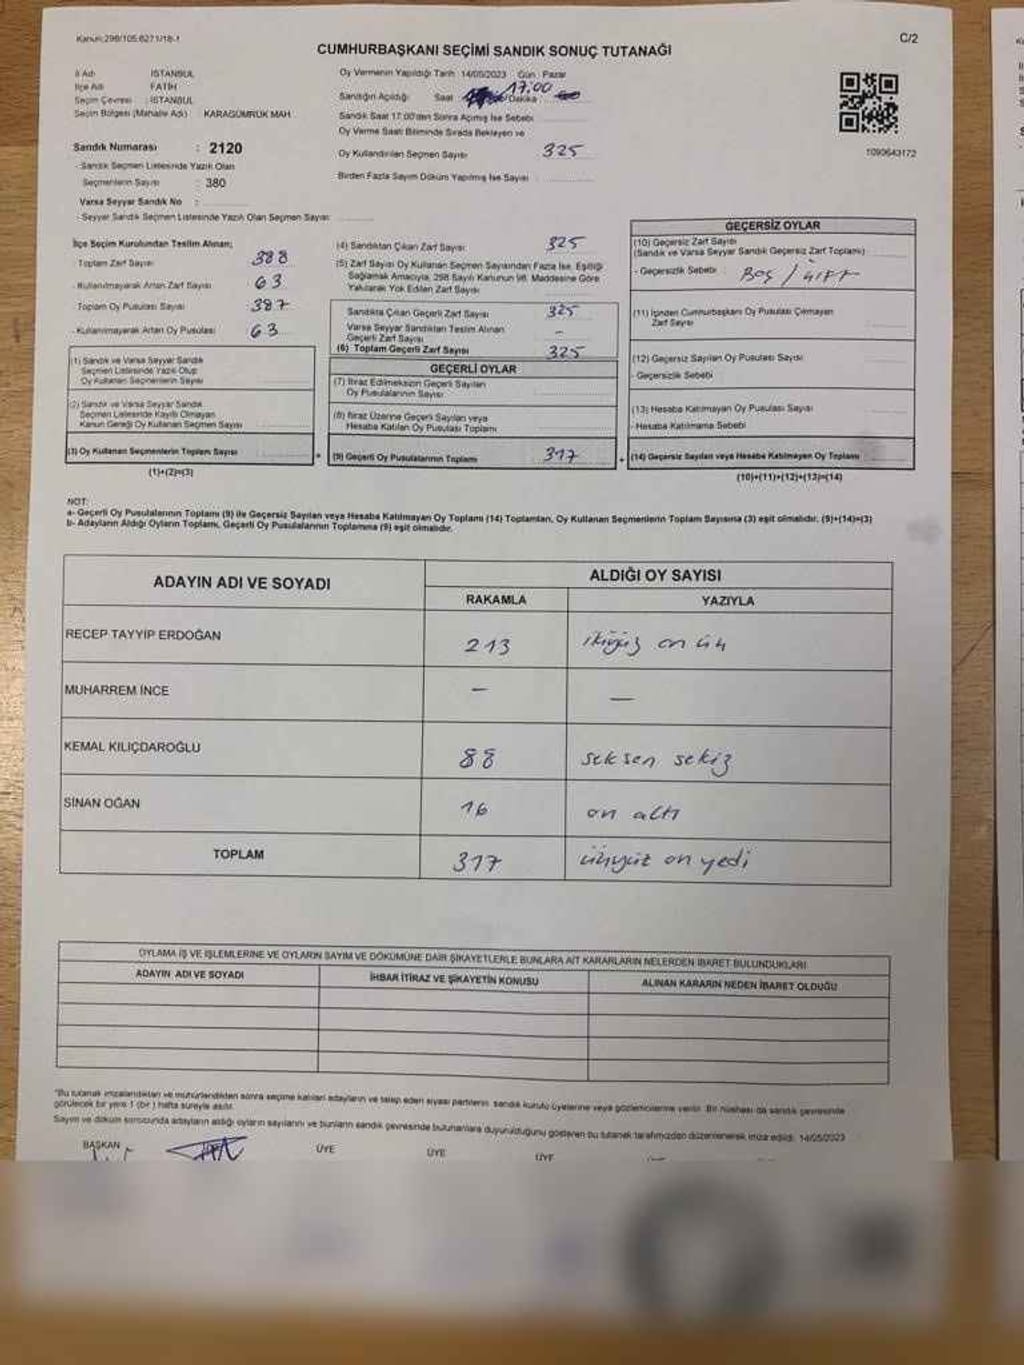 Kanun:298/105.6271/18-1
C/2
CUMHURBAŞKANI SEÇİMİ SANDIK SONUÇ TUTANAĞI
İl Adı İSTANBUL
İlçe Adı FATİH
Seçim Çevresi : İSTANBUL
Seçim Bölgesi (Mahalle Adı) KARAGÜMRÜK MAH.
Sandık Numarası : 2120
- Sandık Seçmen Listesinde Yazılı Olan
Seçmenlerin Sayısı : 380
Varsa Seyyar Sandık No :
- Seyyar Sandık Seçmen Listesinde Yazılı Olan Seçmen Sayısı
Oy Vermenin Yapıldığı Tarih 14/05/2023 Gün : Pazar
Sandığın Açıldığı Saat 17:00 Dakika
Sandık Saat 17.00'den Sonra Açılmış İse Sebebi
Oy Verme Saati Bitiminde Sırada Bekleyen ve
Oy Kullandırılan Seçmen Sayısı 325
Birden Fazla Sayım Döküm Yapılmış İse Sayısı
1090643172
İlçe Seçim Kurulundan Teslim Alınan;
Toplam Zarf Sayısı 388
- Kullanılmayarak Artan Zarf Sayısı 63
Toplam Oy Pusulası Sayısı 387
- Kullanılmayarak Artan Oy Pusulası 63
(1) Sandık ve Varsa Seyyar Sandık
Seçmen Listesinde Yazılı Olup
Oy Kullanan Seçmenlerin Sayısı
(2) Sandık ve Varsa Seyyar Sandık
Seçmen Listesinde Kayıtlı Olmayan
Kanun Gereği Oy Kullanan Seçmen Sayısı
(3) Oy Kullanan Seçmenlerin Toplam Sayısı
(1)+(2)=(3)
(4) Sandıktan Çıkan Zarf Sayısı 325
(5) Zarf Sayısı Oy Kullanan Seçmen Sayısından Fazla İse, Eşitliği
Sağlamak Amacıyla, 298 Sayılı Kanunun 98. Maddesine Göre
Yakılarak Yok Edilen Zarf Sayısı
Sandıkta Çıkan Geçerli Zarf Sayısı 325
Varsa Seyyar Sandıktan Teslim Alınan
Geçerli Zarf Sayısı -
(6) Toplam Geçerli Zarf Sayısı 325
GEÇERLİ OYLAR
(7) İtiraz Edilmeksizin Geçerli Sayılan
Oy Pusulalarının Sayısı
(8) İtiraz Üzerine Geçerli Sayılan veya
Hesaba Katılan Oy Pusulası Toplamı
(9) Geçerli Oy Pusulalarının Toplamı 317
GEÇERSİZ OYLAR
(10) Geçersiz Zarf Sayısı
(Sandık ve Varsa Seyyar Sandık Geçersiz Zarf Toplamı)
- Geçersizlik Sebebi Boş / çift
(11) İçinden Cumhurbaşkanı Oy Pusulası Çıkmayan
Zarf Sayısı
(12) Geçersiz Sayılan Oy Pusulası Sayısı
- Geçersizlik Sebebi
(13) Hesaba Katılmayan Oy Pusulası Sayısı
- Hesaba Katılmama Sebebi
+ (14) Geçersiz Sayılan veya Hesaba Katılmayan Oy Toplamı
(10)+(11)+(12)+(13)=(14)
NOT:
a- Geçerli Oy Pusulalarının Toplamı (9) ile Geçersiz Sayılan veya Hesaba Katılmayan Oy Toplamı (14) Toplamları, Oy Kullanan Seçmenlerin Toplam Sayısına (3) eşit olmalıdır. (9)+(14)=(3)
b- Adayların Aldığı Oyların Toplamı, Geçerli Oy Pusulalarının Toplamına (9) eşit olmalıdır.
ADAYIN ADI VE SOYADI
ALDIĞI OY SAYISI
RAKAMLA YAZIYLA
RECEP TAYYİP ERDOĞAN 213 ikiyüz on üç
MUHARREM İNCE - -
KEMAL KILIÇDAROĞLU 88 seksen sekiz
SİNAN OĞAN 16 on altı
TOPLAM 317 üçyüz on yedi
OYLAMA İŞ VE İŞLEMLERİNE VE OYLARIN SAYIM VE DÖKÜMÜNE DAİR ŞİKAYETLERLE BUNLARA AİT KARARLARIN NELERDEN İBARET BULUNDUKLARI
ADAYIN ADI VE SOYADI İHBAR İTİRAZ VE ŞİKAYETİN KONUSU ALINAN KARARIN NEDEN İBARET OLDUĞU
*Bu tutanak imzalandıktan ve mühürlendikten sonra seçime katılan adayların ve talep eden siyasi partilerin sandık kurulu üyelerine veya gözlemcilerine verilir. Bir nüshası da sandık çevresinde
görülecek bir yere 1 (bir) hafta süreyle asılır.
Sayım ve döküm sonucunda adayların aldığı oyların sayılarını ve bunların sandık çevresinde bulunanlara duyurulduğunu gösteren bu tutanak tarafımızdan düzenlenerek imza edildi. 14/05/2023
BAŞKAN ÜYE ÜYE ÜYE